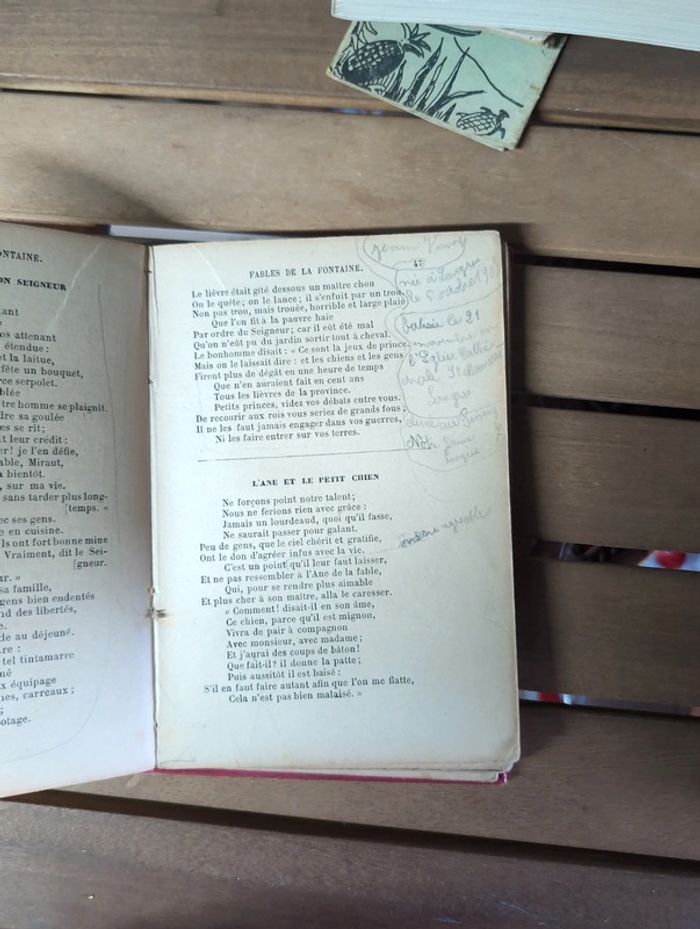 ONTAINE.
ON SEIGNEUR
tant
os attenant
étendue :
et la laitue,
y fête un bouquet,
rce serpolet.
blée
tre homme se plaignit.
dre sa goulée
es se rit ;
t leur crédit :
er! je l'en défie,
able, Miraut,
a bientôt.
, sur ma vie.
sans tarder plus long-
[temps. «
ec ses gens.
e en cuisine.
ls ont fort bonne mine
Vraiment, dit le Sei-
[gneur.
ur. »
sa famille,
gens bien endentés
nd des libertés,
de au déjeuné.
re :
tel tintamarre
né
x équipage
nes, carreaux ;
;
otage.
FABLES DE LA FONTAINE.
47
Le lièvre était gîté dessous un maître chou
On le quête ; on le lance ; il s'enfuit par un trou,
Non pas trou, mais trouée, horrible et large plaie
Que l'on fit à la pauvre haie
Par ordre du Seigneur ; car il eût été mal
Qu'on n'eût pu du jardin sortir tout à cheval.
Le bonhomme disait : « Ce sont là jeux de prince.
Mais on le laissait dire : et les chiens et les gens
Firent plus de dégât en une heure de temps
Que n'en auraient fait en cent ans
Tous les lièvres de la province.
Petits princes, videz vos débats entre vous.
De recourir aux rois vous seriez de grands fous ;
Il ne les faut jamais engager dans vos guerres,
Ni les faire entrer sur vos terres.
L'ANE ET LE PETIT CHIEN
Ne forçons point notre talent ;
Nous ne ferions rien avec grâce :
Jamais un lourdeaud, quoi qu'il fasse,
Ne saurait passer pour galant.
Peu de gens, que le ciel chérit et gratifie,
Ont le don d'agréer infus avec la vie.
C'est un point qu'il leur faut laisser,
Et ne pas ressembler à l'Ane de la fable,
Qui, pour se rendre plus aimable
Et plus cher à son maître, alla le caresser.
« Comment! disait-il en son âme,
Ce chien, parce qu'il est mignon,
Vivra de pair à compagnon
Avec monsieur, avec madame ;
Et j'aurai des coups de bâton!
Que fait-il? il donne la patte ;
Puis aussitôt il est baisé :
S'il en faut faire autant afin que l'on me flatte,
Cela n'est pas bien malaisé. »
née à Langres
le 6 octobre
le 21
novembre en
l'Église
Langres
agréable